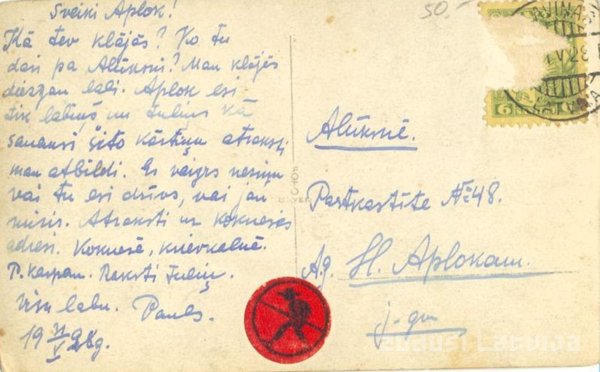 Sveiki Aplok!
Kā tev klājās? Ko tu
dari pa Alūksni? Man klājās
diezgan labi. Aplok esi
tik labiņš un tulīns kā
sanemsi šito kārtiņu atraksti
man atbildi. Es vairs nezinu
vai tu esi dzīvs, vai jau
miris. Atraksti uz Kokneses
adresi. Koknesē, Krievkalnē.
P. Karpam. Raksti tuliņ.
Visu labu. Pauls.
19 31/V 28g.
50.-
Alūksnē.
Pastkastīte № 48.
Ag. H. Aplokam.
j-gm